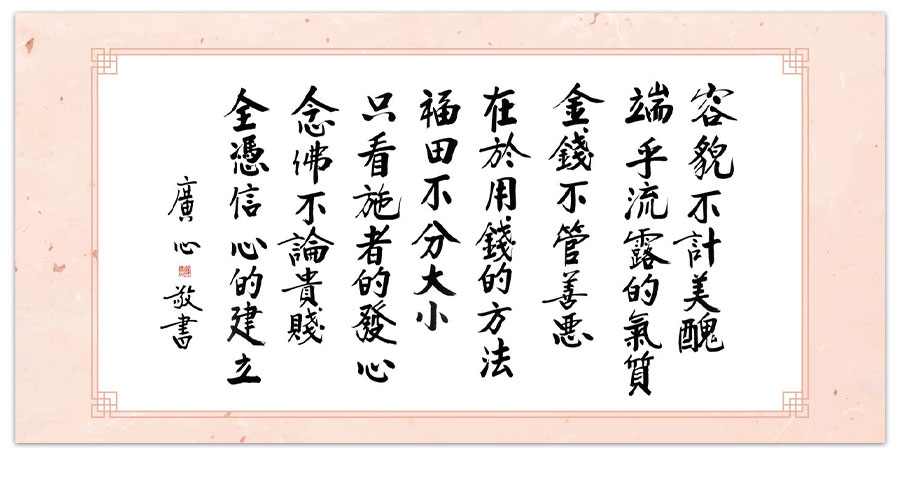 容貌不計美醜
端乎流露的氣質
金錢不管善惡
在於用錢的方法
福田不分大小
只看施者的發心
念佛不論貴賤
全憑信心的建立
廣心敬書